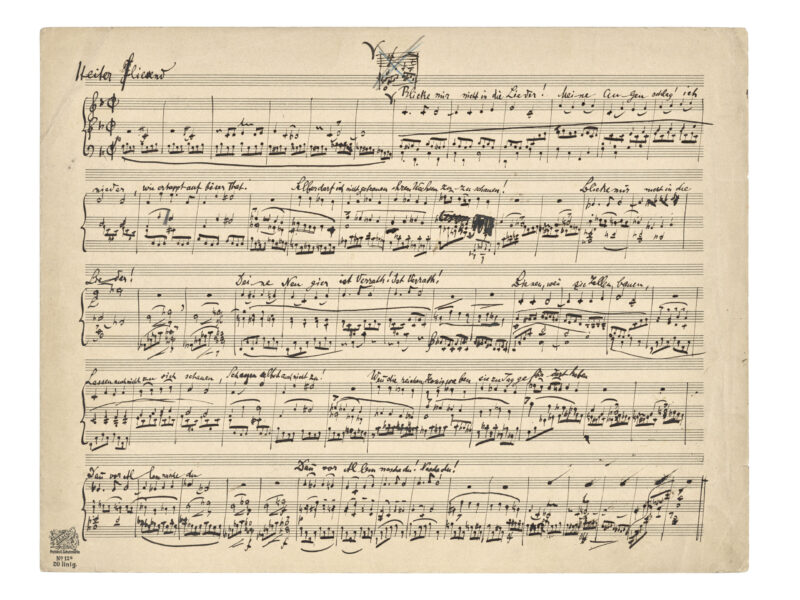 Heiter fließend
Blicke mir nicht in die Lieder! Meine Augen schlag' ich
nieder, wie ertappt auf böser That. Selber darf ich nicht getrauen ihrem Wachsen zu-zu schauen! Blicke mir nicht in die
Lie-der! Dei-ne Neu gier ist Verrath! Ist Verrath! Bienen, wenn sie Zellen bauen,
Lassen auch nicht zu sich schauen, Schauen selbst auch nicht zu! Wenn die reichen Honigwaben sie zu Tag gefördert haben
Dann vor Al len nasche du Dann vor Al len nasche du! Nasche du!
No 12
20 linig.